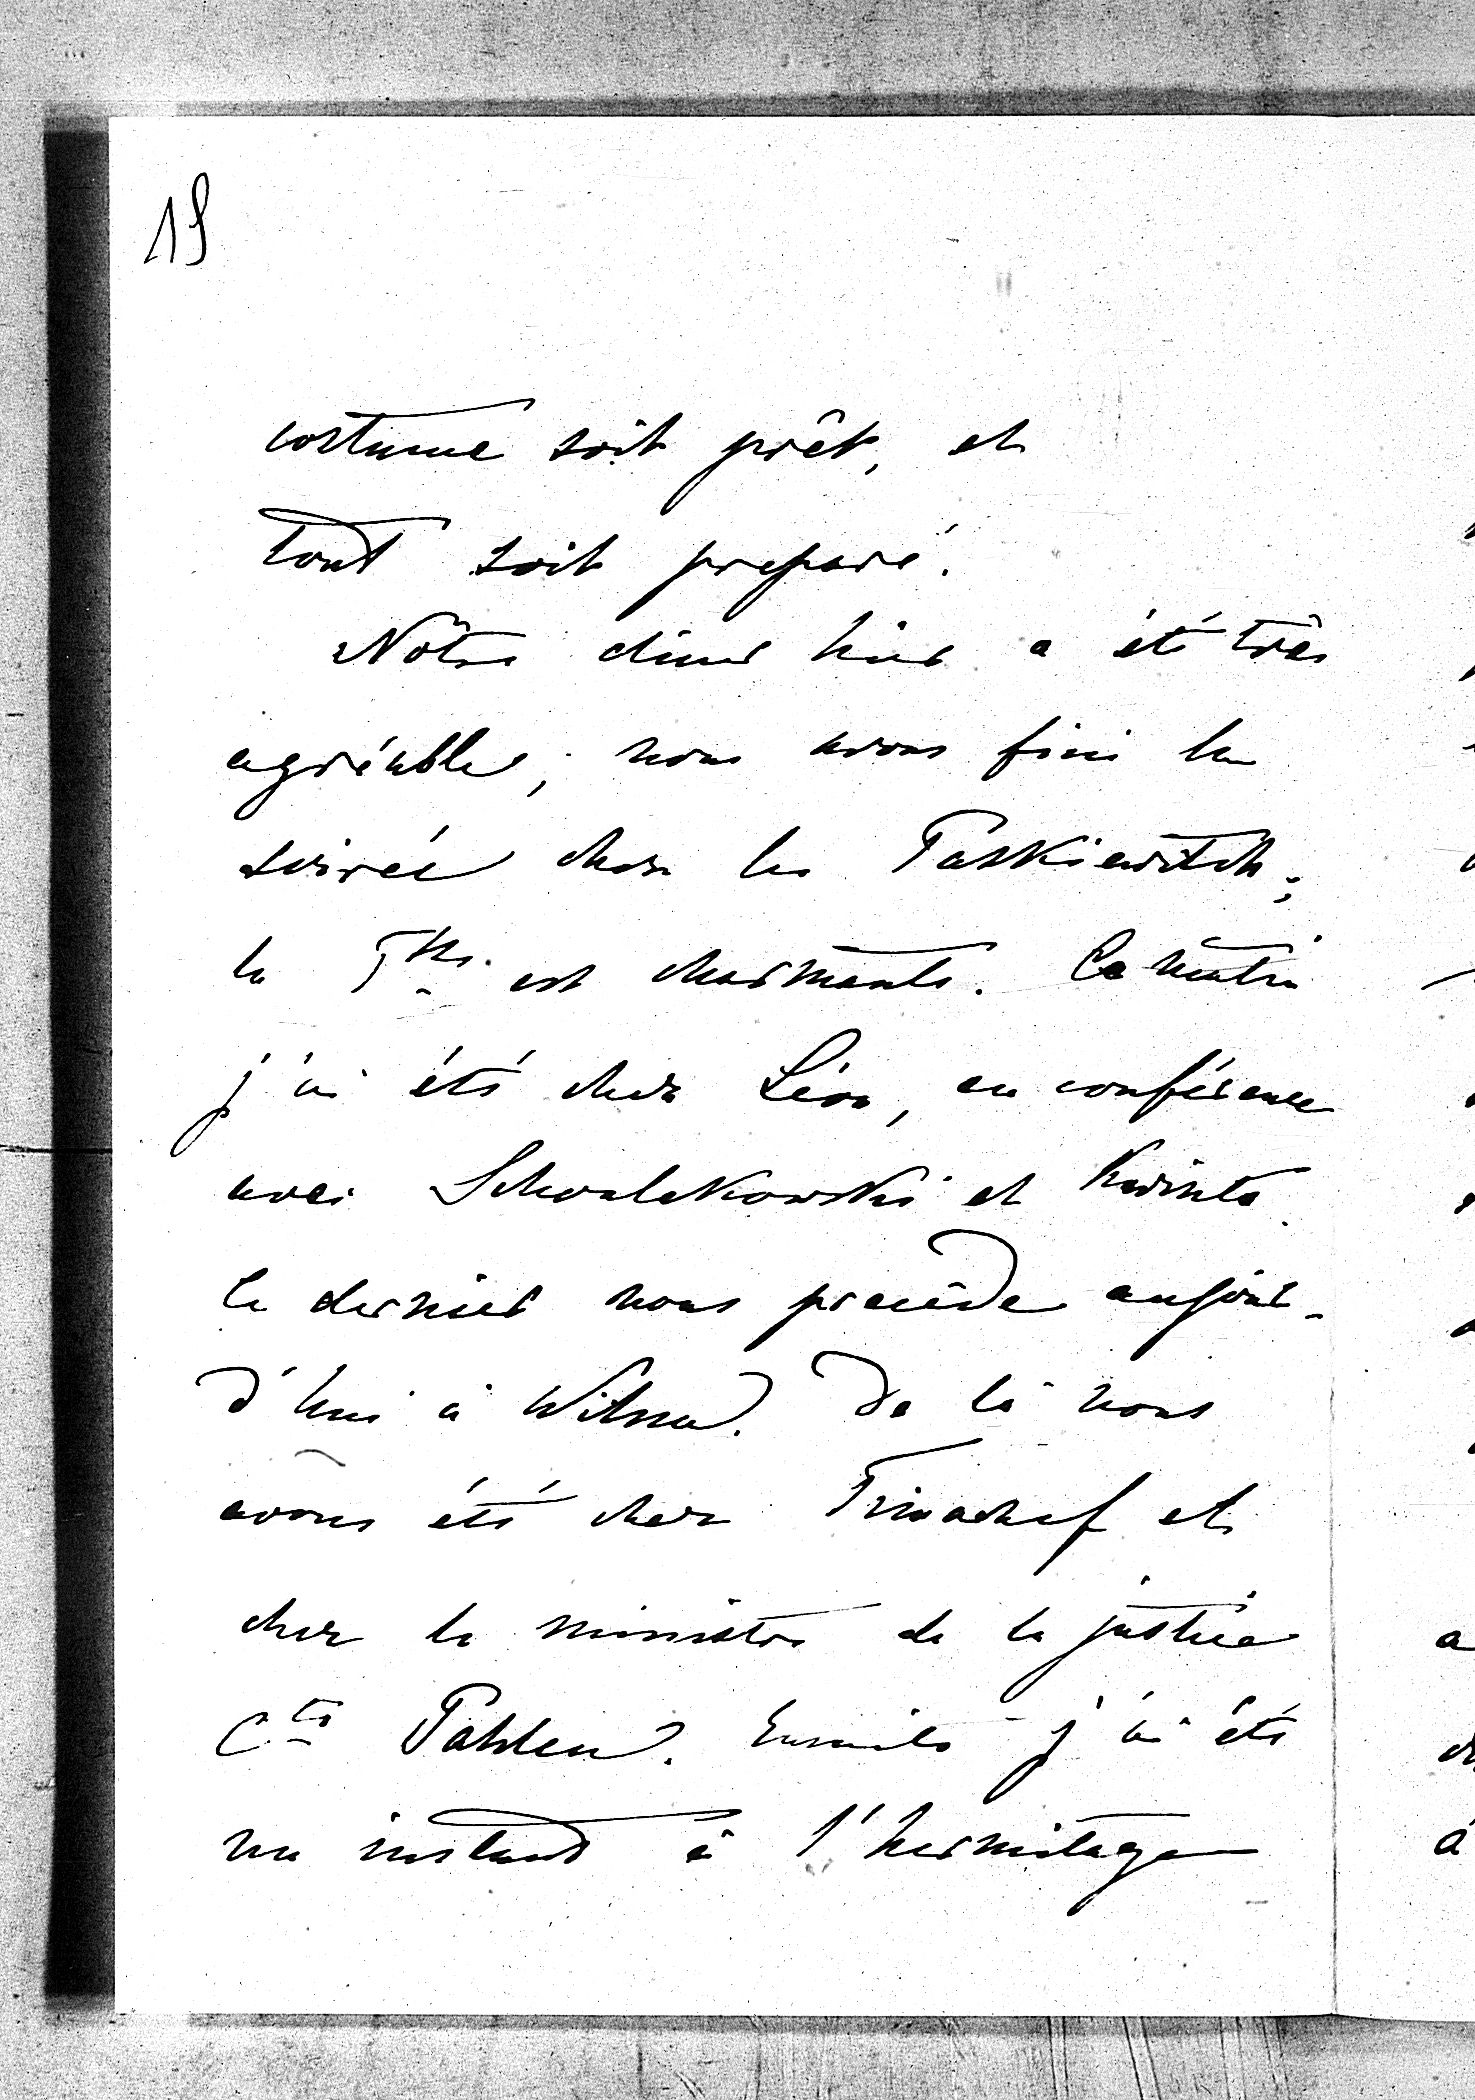 19
costume soit prêt, et
tout soit preparé.
Nôtre diner hier a été très
agréable, nous avons fini la
soirée chez les Paskiewitch;
la Psse. est charmante. Ce matin
j'ai été chez Léon, en conférence
avec Schoulakowski et Kwinto.
le dernier nous precède aujour-
d'hui à Wilna. De là nous
avons été chez Timachef et
chez le ministre de la justice
Cte Pahlen. Ensuite j'ai été
un instant à l'hermitage